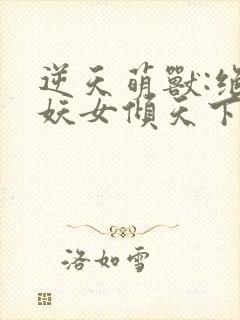 逆天萌獸:絕
妖女傾天下
洛如雪